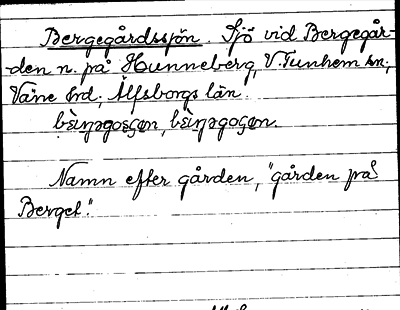 Bergegårdssjön. Sjö vid Bergegår-
-den n. på Hunneberg, V. Tunhem sn,
Väne hd, Älfsborgs län.
Namn efter gården, "gården på
Berget".